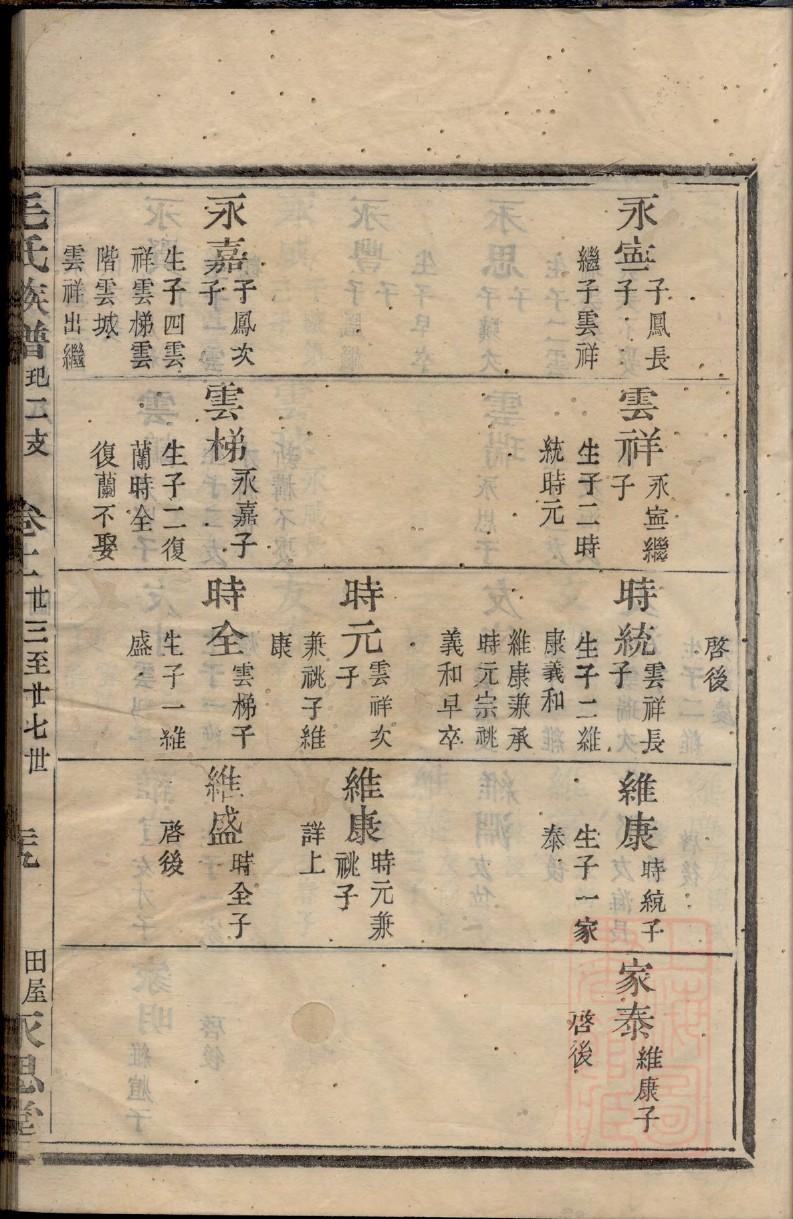 永寍
子鳳長
子
繼子雲祥
永嘉
子鳳次
子
生子四雲
祥雲梯雲
階雲城
雲祥出繼
雲祥
永寍繼
子
生子二時
統時元
雲梯
永嘉子
生子二復
蘭時全
復蘭不娶
啓後
時統
雲祥長
子
生子二維
康義和
維康兼承
時元宗祧
義和早卒
時元
雲祥次
子
兼祧子維
康
時全
雲梯子
生子一維
盛
維康
時統子
生子一家
泰
維康
時元兼
祧子
詳上
維盛
時全子
啓後
家泰
維康子
啓後
毛氏族譜
玘二支
卷十二
廿三至廿七世
田屋
永思堂